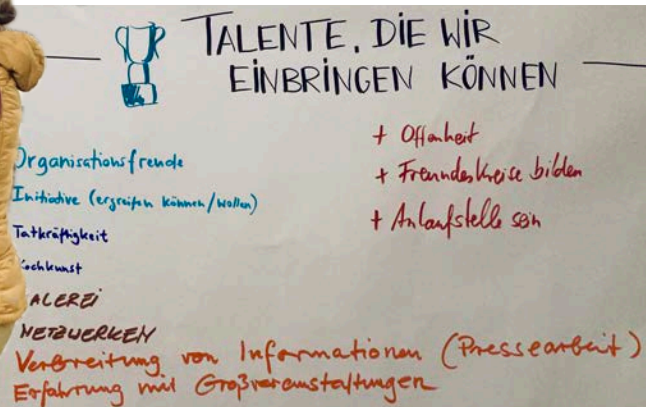 TALENTE, DIE WIR
EINBRINGEN KÖNNEN
Organisationsfreude
Initiative (ergreifen können/wollen)
Tatkräftigkeit
ochkunst
ALEREI
NETZWERKEN
Verbreitung von Informationen (Pressearbeit)
Erfahrung mit Großveranstaltungen
+ Offenheit
+ Freundeskreise bilden
+ Anlaufstelle sein